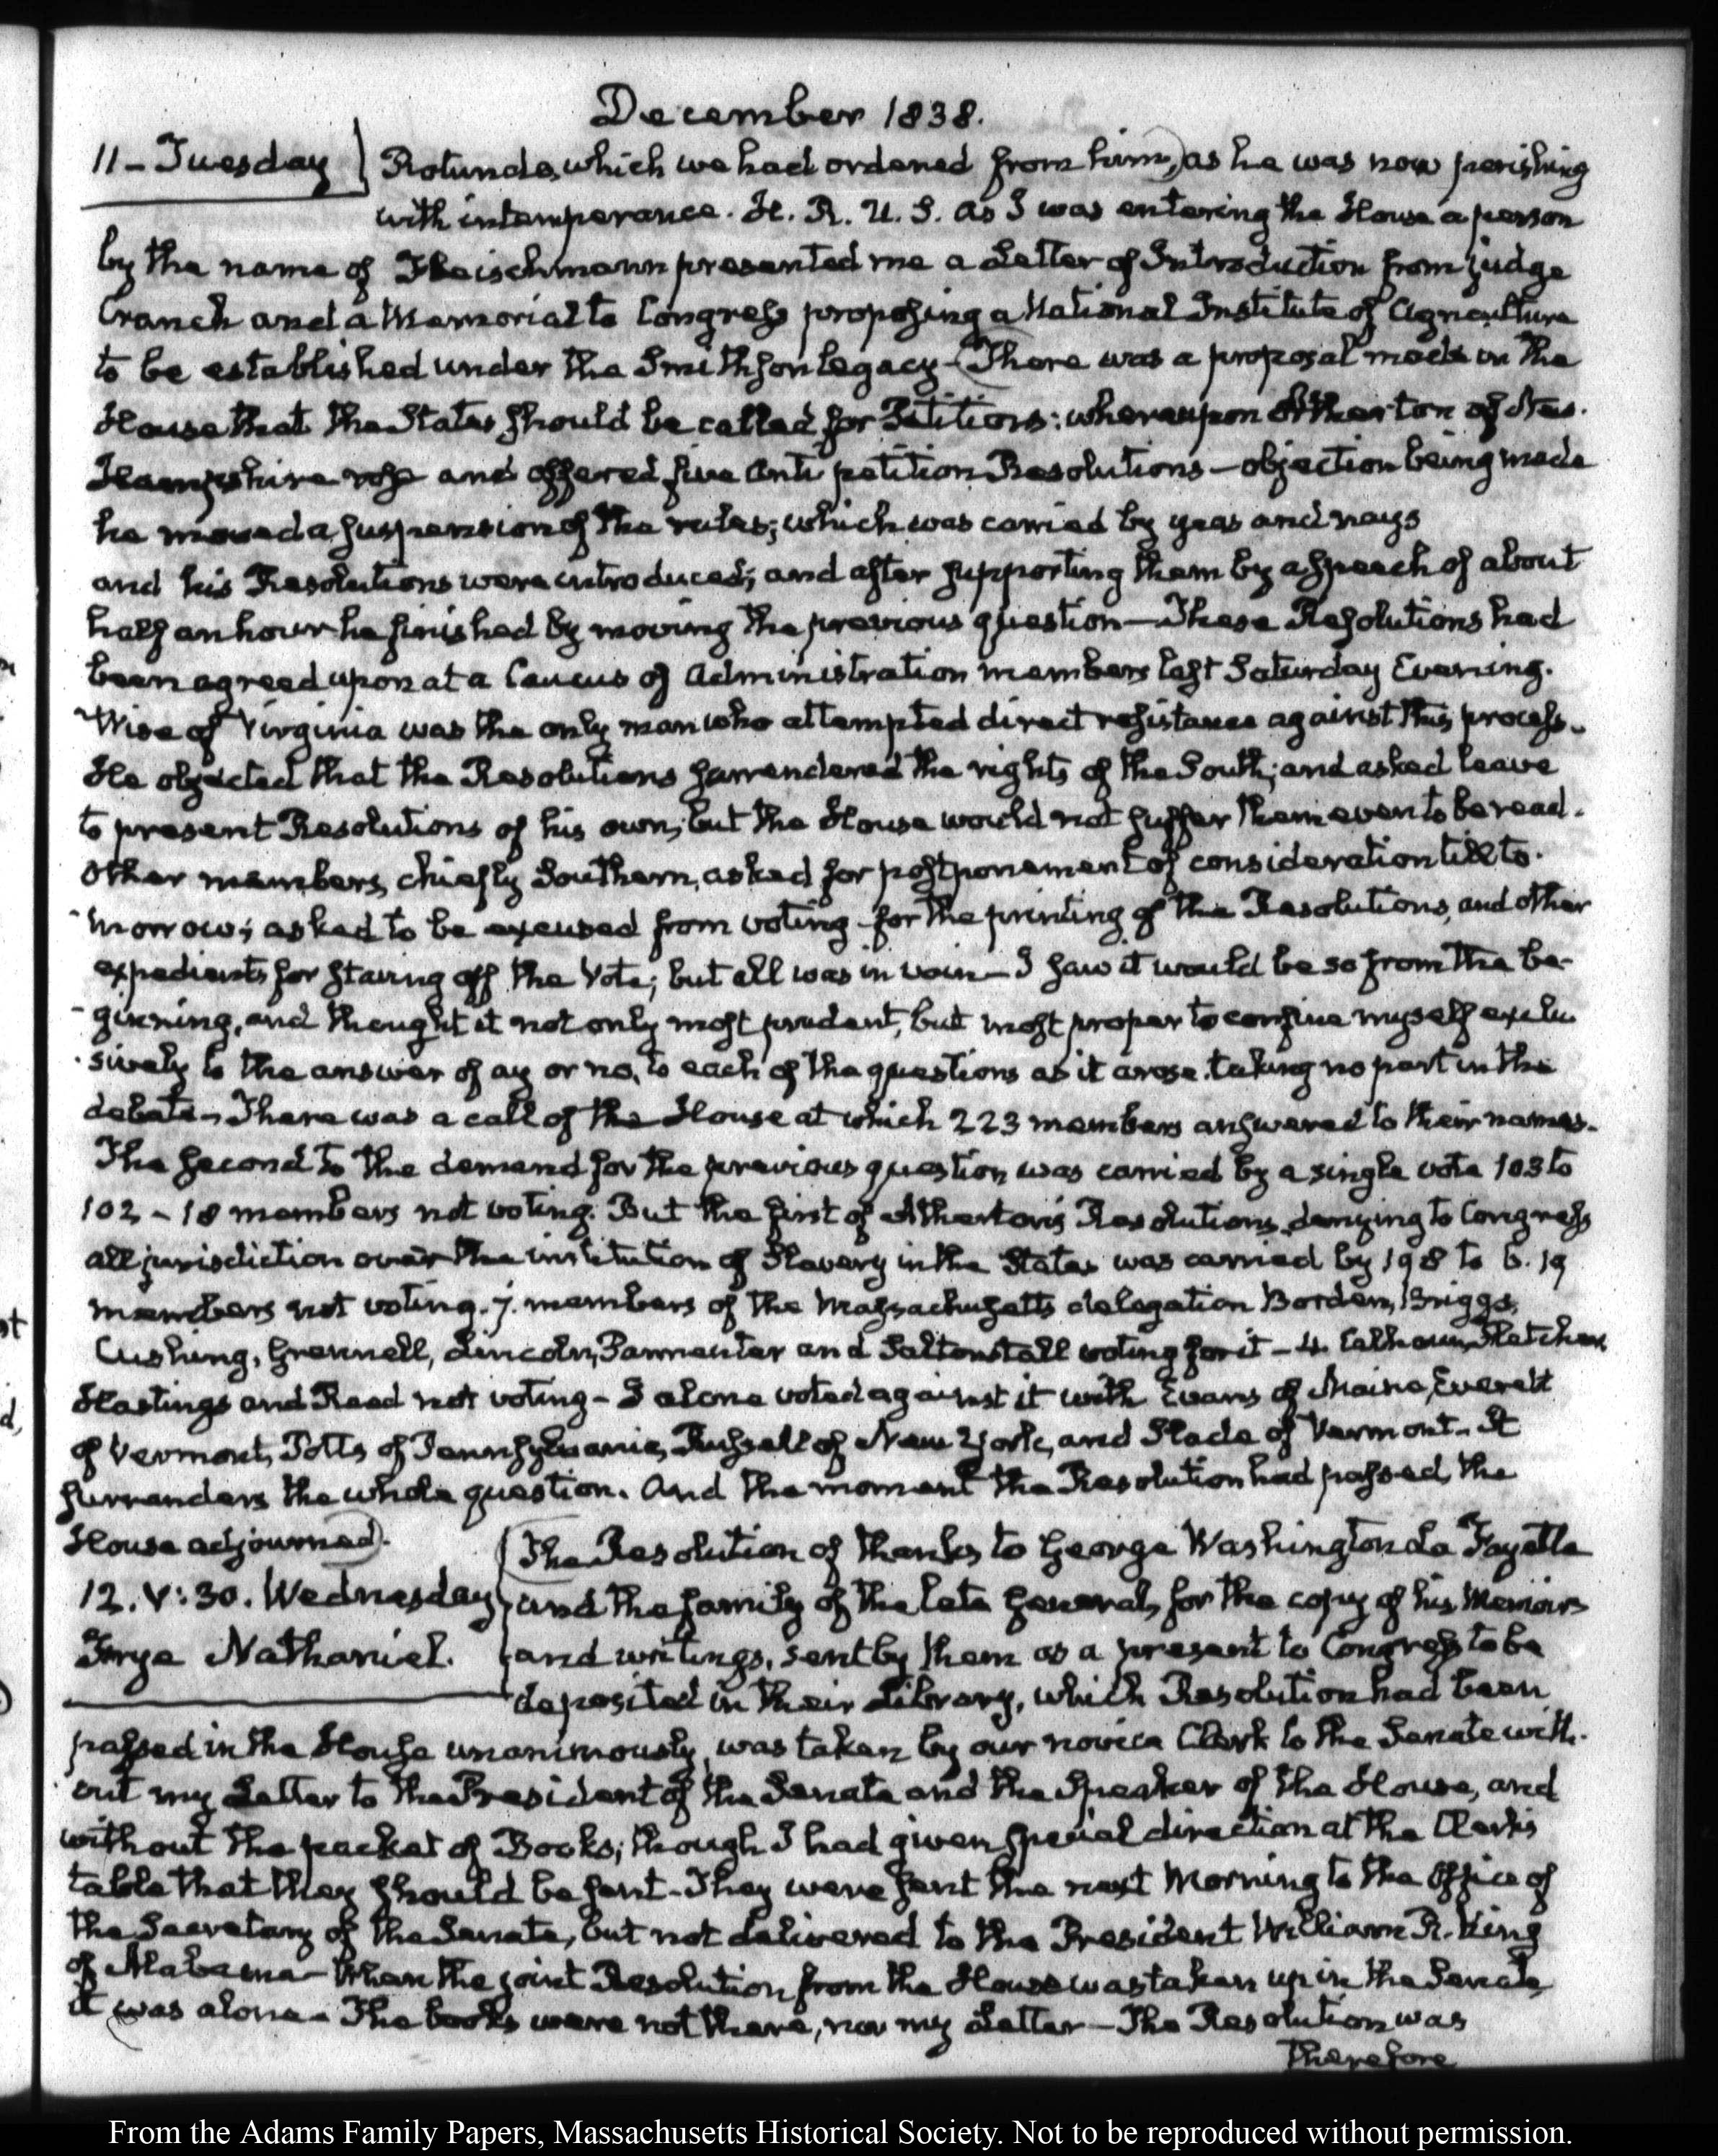 December 1838.
11 - Tuesday
Rotunda, which we had ordered from him,) as he was now perishing
with intemperance. H. R. U. S. as I was entering the House a person
by the name of Fleischmann presented me a Letter of Introduction from judge
Cranch and a Memorial to Congress proposing a National Institute of Agriculture
to be established under the Smithson legacy - (There was a proposal made in the
House that the States should be called for Petitions: whereupon Atherton of New.
Hampshire rose and offered five Anti petition Resolutions - objection being made
he moved a suspension of the rules; which was carried by yeas and nays
and his Resolutions were introduced; and after supporting them by a speech of about
half an hour he finished by moving the previous question - These Resolutions had
been agreed upon at a Caucus of Administration members last Saturday Evening.
Wise of Virginia was the only man who attempted direct resistance against this process.
He objected that the Resolutions surrendered the rights of the South; and asked leave
to present Resolutions of his own; but the House would not suffer them even to be read.
Other members, chiefly Southern, asked for postponement of consideration till to-
-morrow; asked to be excused from voting - for the printing of the Resolutions, and other
expedients for staving off the Vote; but all was in vain - I saw it would be so from the be-
-ginning, and thought it not only most prudent, but most proper to confine myself exclu
-sively to the answer of ay or no, to each of the questions as it arose, taking no part in the
debate - There was a call of the House at which 223 members answered to their names.
The second to the demand for the previous question was carried by a single vote 103 to
102 - 18 members not voting. But the first of Atherton's Resolutions, denying to Congress
all jurisdiction over the institution of Slavery in the States was carried by 198 to 6. 19
members not voting. 7. members of the Massachusetts delegation Borden, Briggs,
Cushing, Grennell, Lincoln, Parmenter and Saltonstall voting for it - 4 Calhoun, Fletcher
Hastings and Reed not voting - I alone voted against it with Evans of Maine, Everett
of Vermont, Potts of Pennsylvania, Russell of New York, and Slade of Vermont - It
surrenders the whole question. And the moment the Resolution had passed, the
House adjourned).
12. V: 30. Wednesday
Frye Nathaniel.
(The Resolution of thanks to George Washington La Fayette
and the family of the late General, for the copy of his Memoirs
and writings, sent by them as a present to Congress to be
deposited in their Library, which Resolution had been
passed in the House unanimously, was taken by our novice Clerk to the Senate with-
out my Letter to the President of the Senate and the Speaker of the House, and
without the packet of Books; though I had given special direction at the Clerk's
table that they should be sent - They were sent the next Morning to the Office of
the Secretary of the Senate, but not delivered to the President William R. King
of Alabama - When the joint Resolution from the House was taken up in the Senate
it was alone - The books were not there, nor my Letter - The Resolution was
therefore
From the Adams Family Papers, Massachusetts Historical Society. Not to be reproduced without permission.